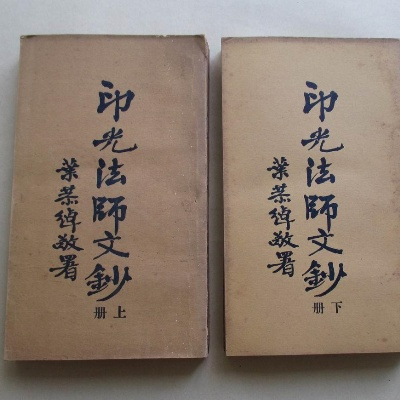 印光法師文鈔
葉恭綽敬署
上册
印光法師文鈔
葉恭綽敬署
下册